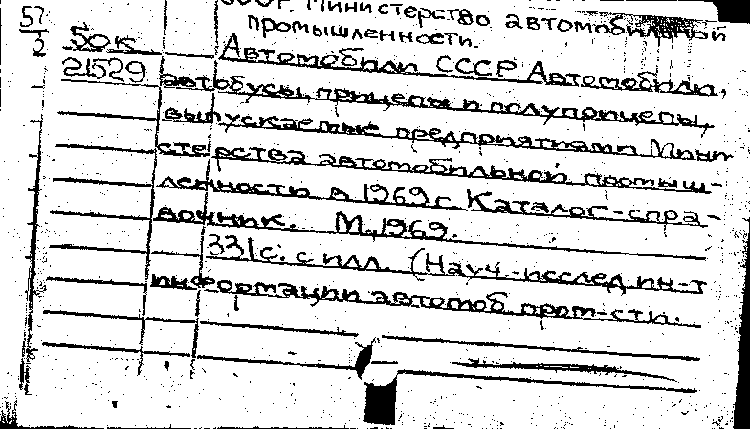 57
2
СССР. Министерство автомобильной
промышленности.
50к
Автомобили СССР Автомобили,
21529
автобусы, прицепы и полуприцепы,
выпускаемые предприятиями Мини
стерства автомобильной промыш-
ленностью в 1969 г. Каталог-спра-
вочник. М., 1969.
331с. с илл. (Науч.-исслед. ин-т
информации автомоб. пром-сти.